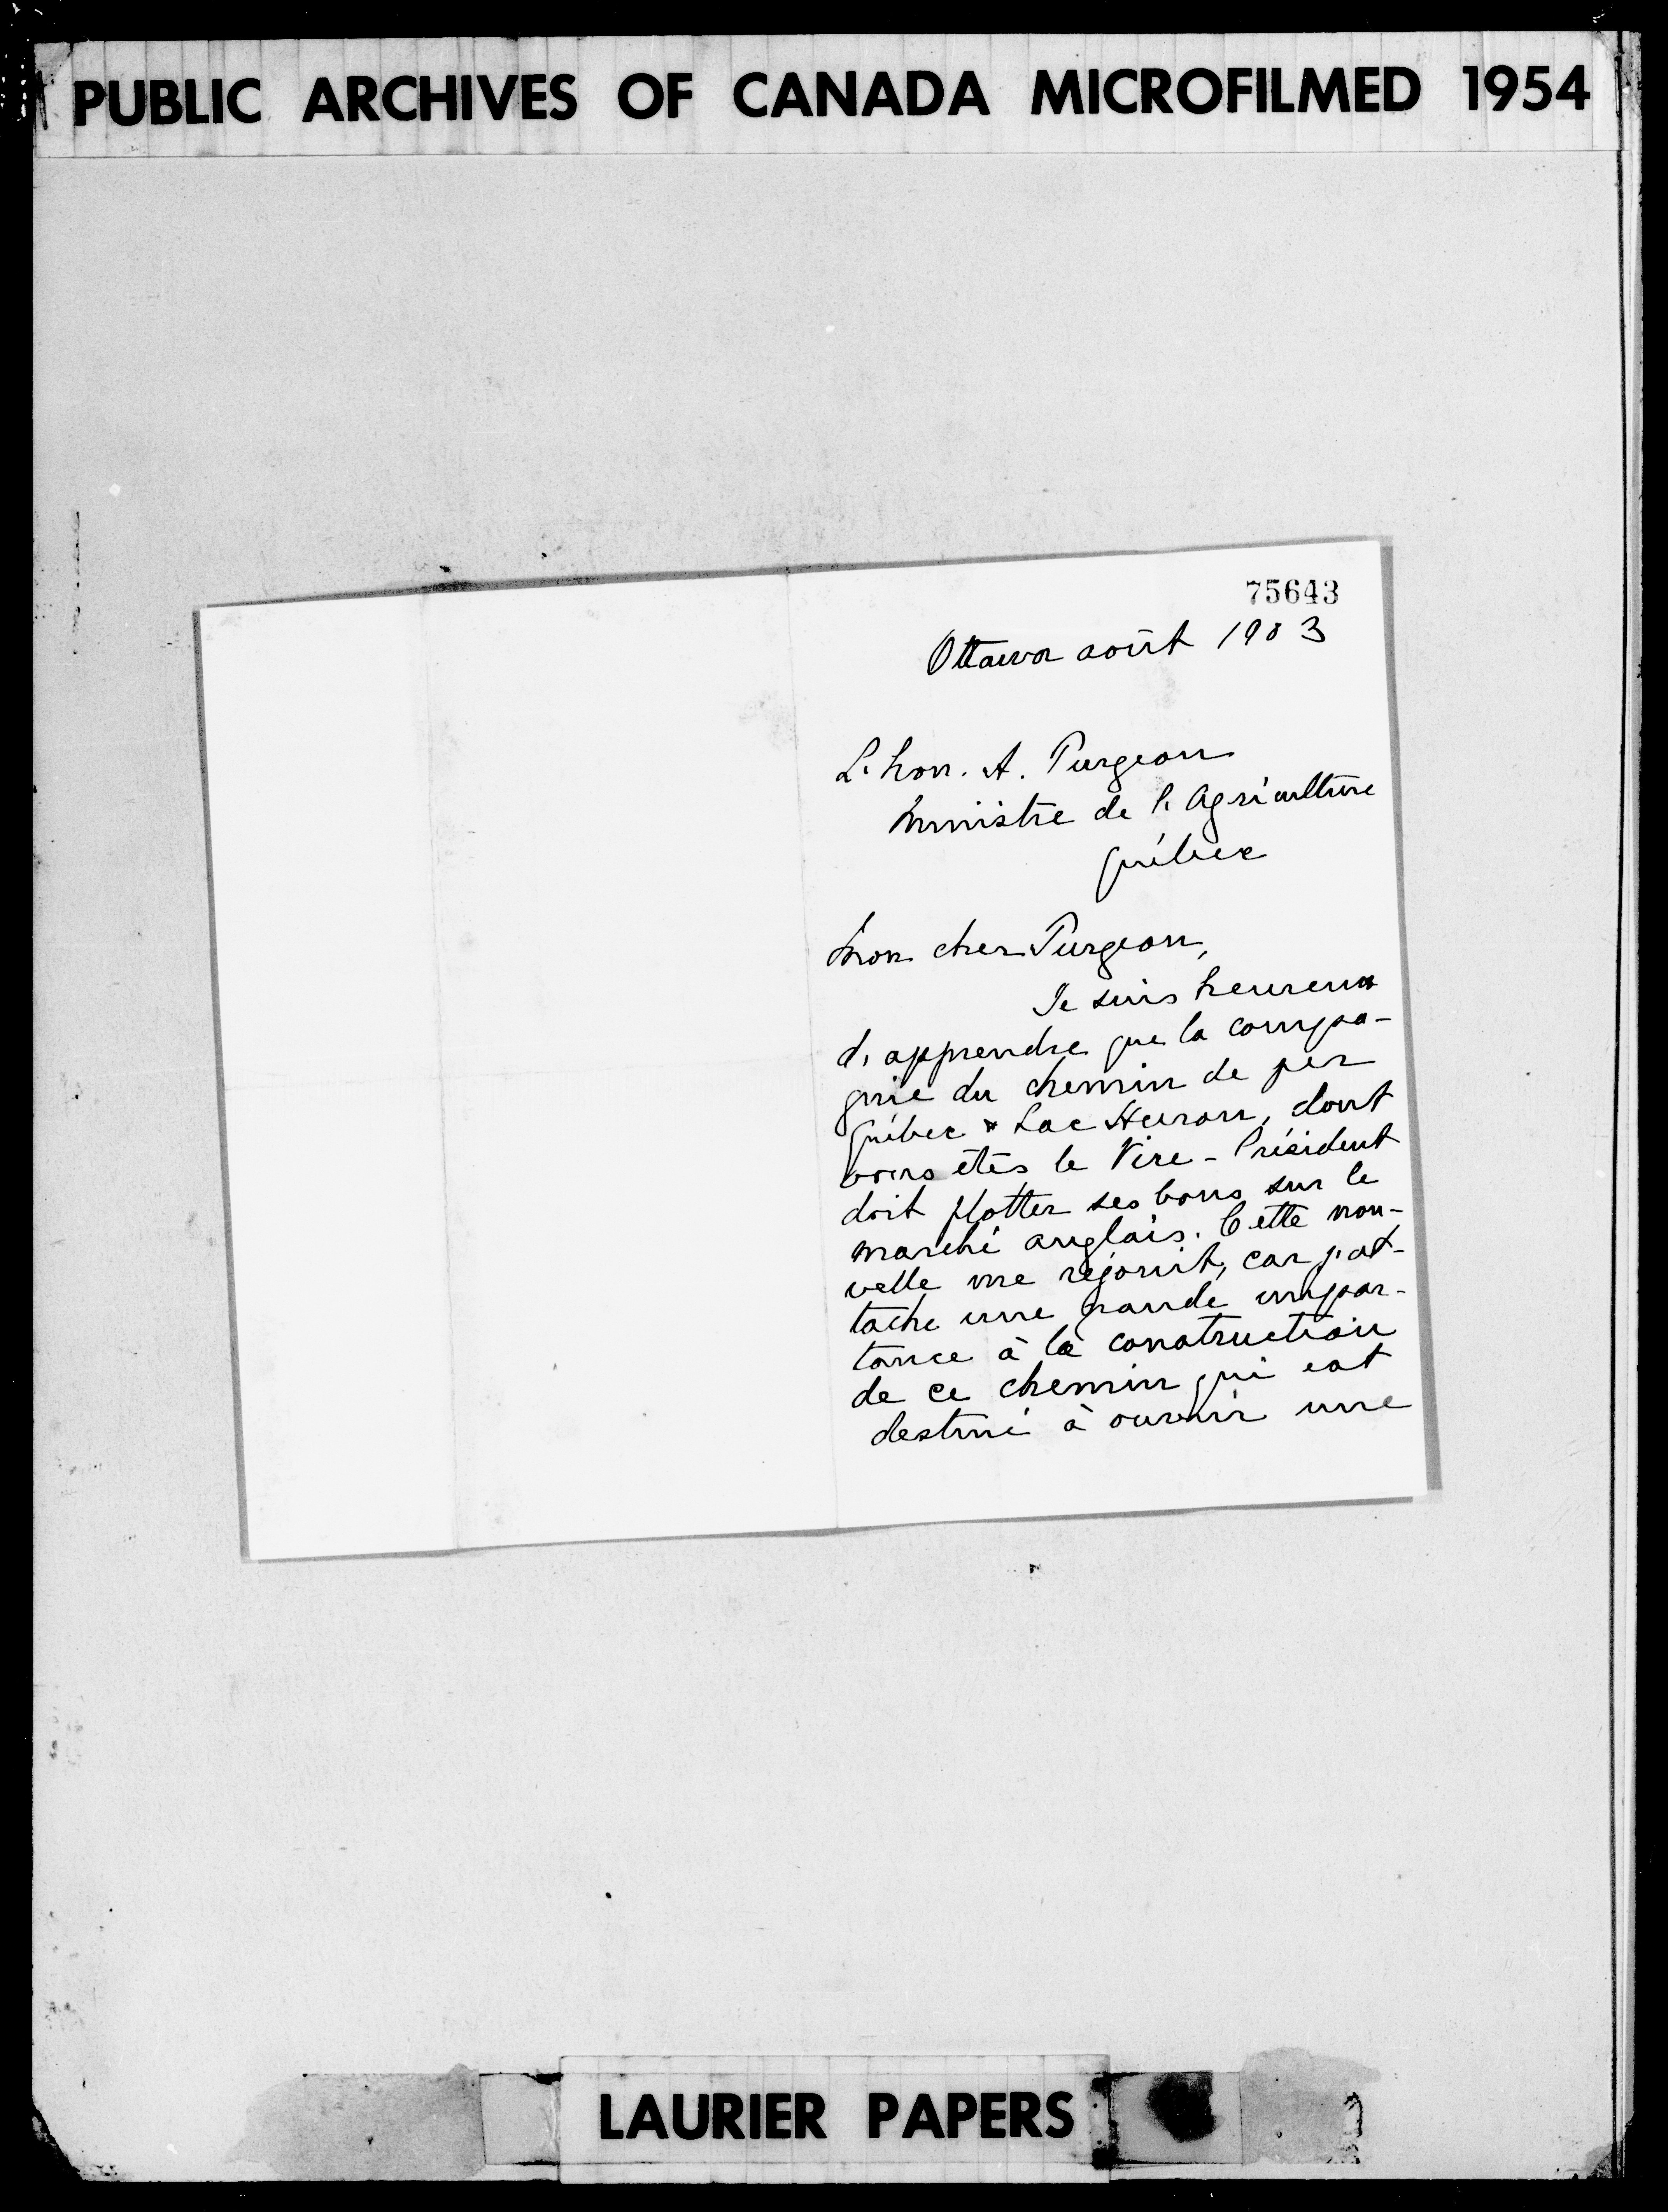 PUBLIC ARCHIVES OF CANADA MICROFILMED 1954
75643
Ottawa août 1903
L'hon. A. Turgeon
Ministre de l'Agriculture
Québec
Mon cher Turgeon,
Je suis heureux
d'apprendre que la compa-
gnie du chemin de fer
Québec & Lac Huron, dont
vous êtes le Vice-Président
doit flotter ses bons sur le
marché anglais. Cette nou-
velle me réjouit, car j'at-
tache une grande impor-
tance à la construction
de ce chemin qui est
destiné à ouvrir une
LAURIER PAPERS